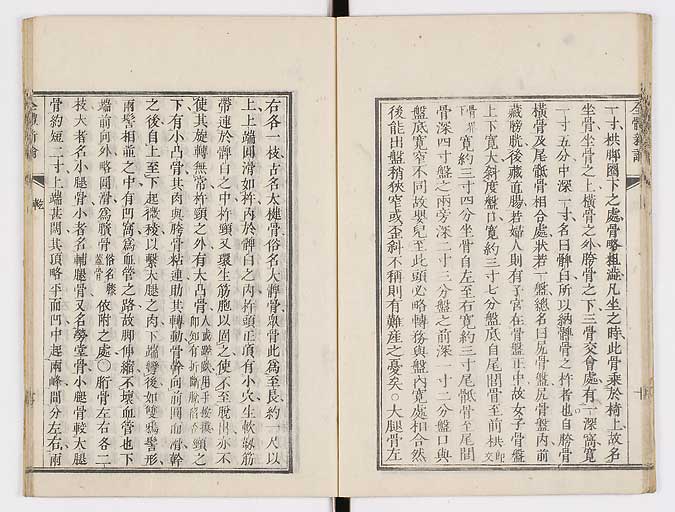 一寸、拱脚圈下之處、骨略粗澁、凡坐之時、此骨乘於椅上、故名
坐骨、坐骨之上、橫骨之外、胯骨之下、三骨交會處、有一深窩、寬
一寸五分、中深一寸、名曰髀臼、所以納髀骨之杵者也、自胯骨
橫骨及尾骶骨相合處、狀若一盤、總名曰尻骨盤、尻骨盤內、前
藏膀胱、後藏直腸、若婦人則有子宮在骨盤正中、故女子骨盤
上下寬大、斜度盤口、寬約三寸七分、盤底自尾閭骨至前拱即交
骨界寬約三寸四分、坐骨自左至右寬約三寸、尾骶骨至尾閭
骨深四寸、盤之兩旁深二寸三分、盤之前深一寸二分、盤口與
盤底寬窄不同、故嬰兒至此、頭必略轉、務與盤內寬處相合、然
後能出、盤稍狹窄、或歪斜不稱、則有難產之憂矣。○大腿骨左
全體新論
右各一枝、古名大楗骨、俗名大髀骨、衆骨此爲至長、約一尺以
上、上端圓滑如杵、內於髀臼之內、杵頭正頂有小穴、生軟韌筋
帶、連於髀臼之中、杵頸又環生筋胞以固之、使不至脫出、亦不
使其旋轉無常、杵頸之外有大凸骨、人或跌蹶用手按摸即知有折斷脫骱否頸之
下有小凸骨、其肉與胯骨粘連、助其轉動、骨幹向前圓而滑、幹
之後自上至下、起微稜、以繫大腿之肉、下端彎後如雙鴉髻形、
兩髻相並之中、有凹窩爲血管之路、故脚伸縮不壞血管也、下
端前向外略圓滑、爲膝骨俗名膝蓋骨依附之處、○胻骨左右各二
枝、大者名小腿骨、小者名輔腿骨、又名勞堂骨、小腿骨較大腿
骨約短二寸、上端甚闊、其頂略平而凹、中起兩峰、間分左右、兩
全體新論
乾